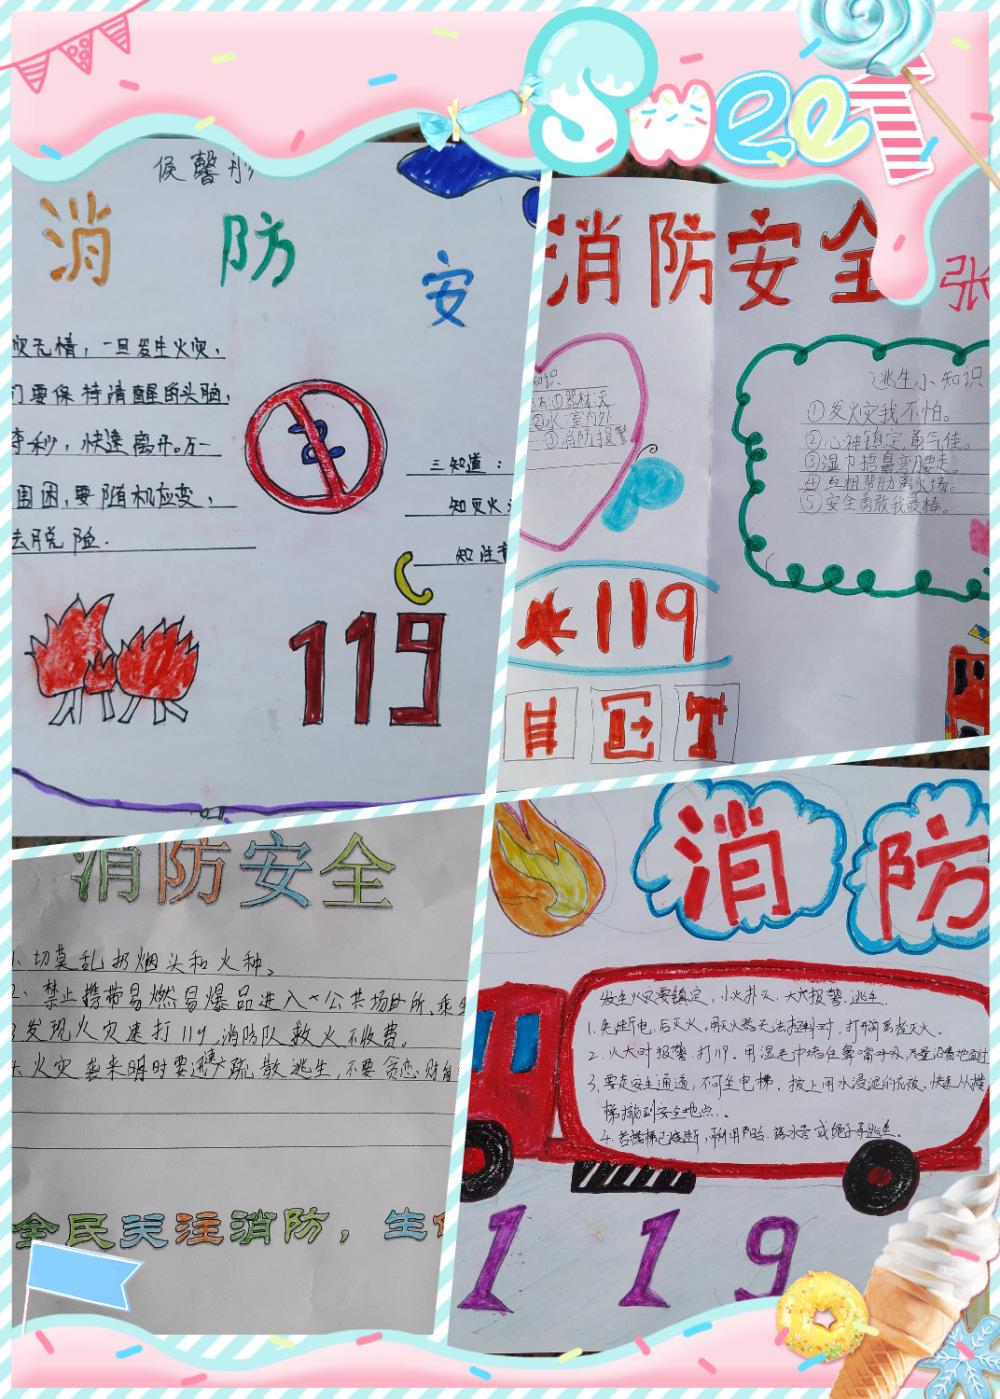 Sweet
侯馨彤
消 防 安
灾无情，一旦发生火灾，
们要保持清醒的头脑，
夺秒，快速离开。万一
围困，要随机应变，
去脱险.
三知道：
知灭火
知注意
119
消防安全 张
知识
①器材灭
②水:室内外
③消防报警
逃生小知识
①发火灾我不怕。
②心神镇定勇气佳。
③湿巾捂鼻弯腰走。
④互相帮助离火场。
⑤安全勇敢我最棒。
119
消防安全
1、切莫乱扔烟头和火种。
2、禁止携带易燃易爆品进入公共场所、乘坐
3 发现火灾速打119,消防队救火不收费。
火灾袭来时要迅速疏散逃生,不要贪恋财
全民关注消防，生
消 防
发生火灾要镇定，小火扑灭，大火报警、逃生.
1.先断电,后灭火,用灭火器无法控制时,打开阀离检灭火.
2.火大时报警,打119.用湿毛巾堵住鼻
3.要走安全通道,不可坐电梯.披上用水浸湿的衣被,快速从楼
梯撤到安全地点.
4.若楼梯已烧断,利用阳台.落水管或绳子等逃生.
119